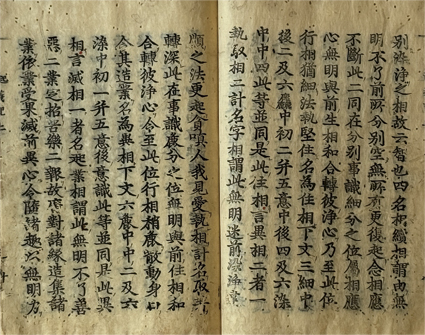 別染淨之相故云智也四名相續相謂由無
明不了前所分別空無所有更復起念相應
不斷此二同在分別事識細分之位屬相應
心無明與前生相和合轉彼淨心乃至此位
行相猶細法執堅住名為住相下文三細中
後二及六麤中初二并五意中後四及六染
中中四此等並同是此住相言異相二者一
執取相二計名字相謂此無明迷前染淨違
順之法更起貪嗔人我見愛執相計名取著
轉深此在事識麤分之位無明與前住相和
合轉彼淨心令至此位行相稍麤散動身口
令其造業名為異相下文六麤中中二及六
染中初一并五意後意識此等並同是此異
相言滅相一者名起業相謂此無明不了善
惡二業定招苦樂二報故廣對諸緣造集諸
業依業受果滅前異心令隨諸趣以無明力